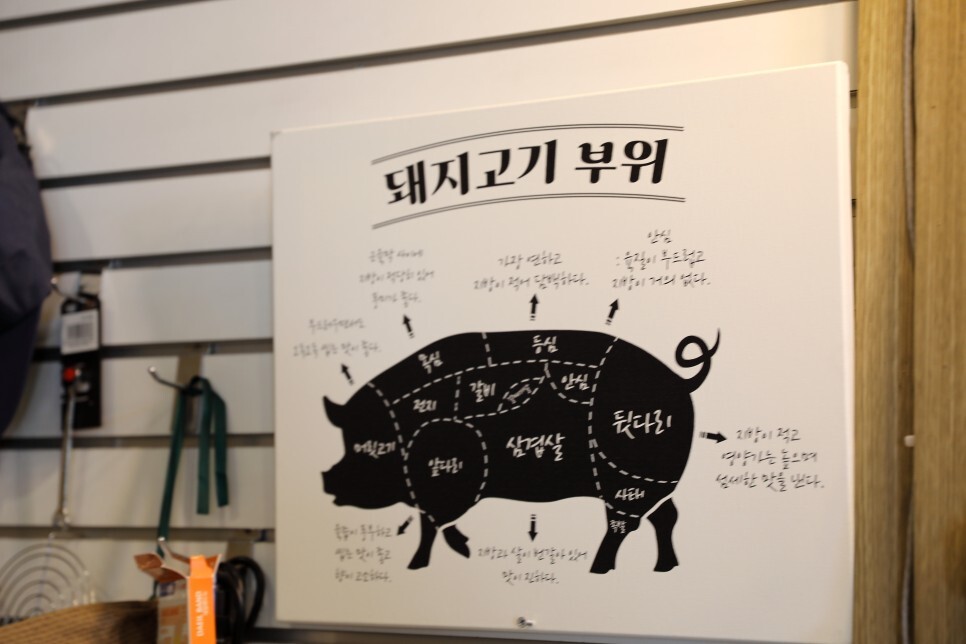 돼지고기 부위
안심
: 육질이 부드럽고
지방이 거의 없다.
가장 연하고
지방이 적어 담백하다.
근육막 사이에
지방이 적당히 있어
풍미가 좋다.
부드러우면서도
오독오독 씹는 맛이 좋다.
목심
등심
전지
갈비
안심
머릿고기
앞다리
삼겹살
뒷다리
사태
족발
지방이 적고
영양가는 높으며
섬세한 맛을 낸다.
육즙이 풍부하고
씹는 맛이 좋고
향이 고소하다.
지방과 살이 번갈아 있어
맛이 진하다.